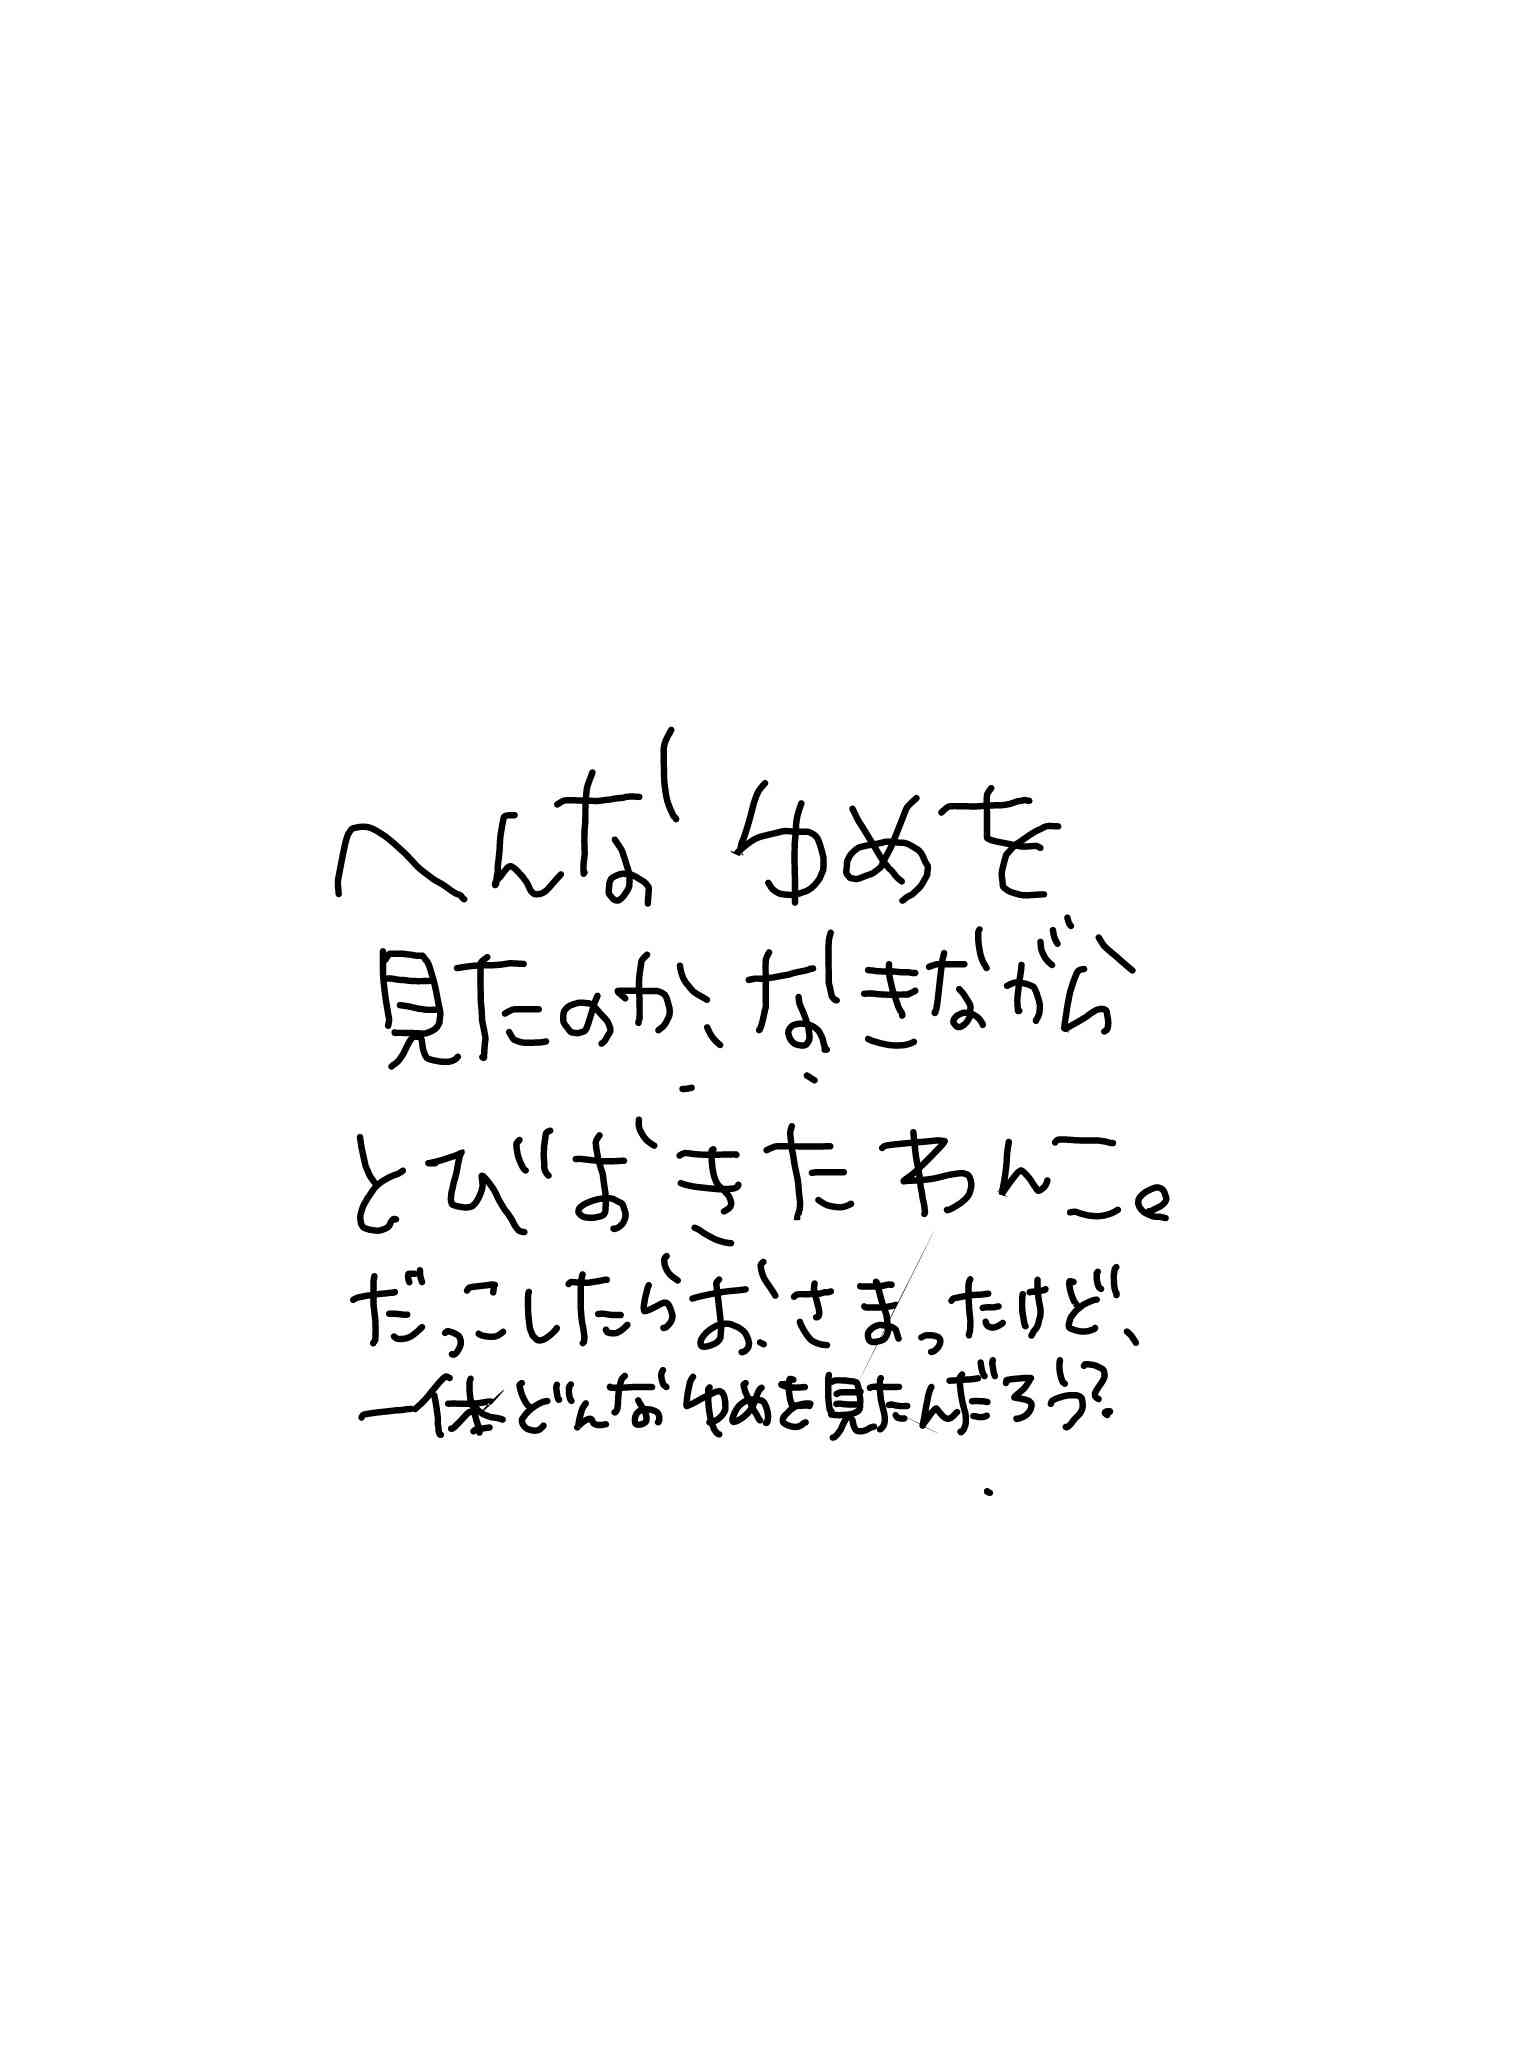 へんなゆめを
見たのか、なきながら
とびおきたわんこ。
だっこしたらおさまったけど、
一体どんなゆめを見たんだろう?